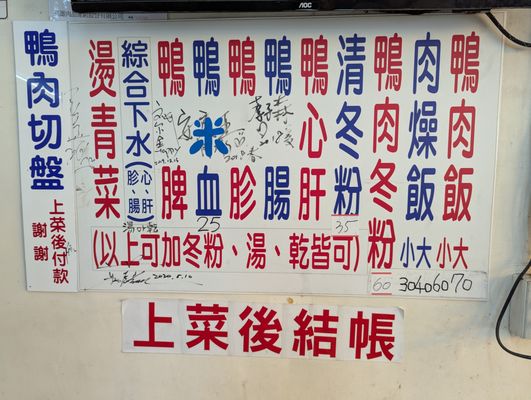 AOC
鴨肉飯
小大
60 70
肉燥飯
小大
30 40
鴨肉冬粉
60
清冬粉
35
鴨心肝
鴨腸
鴨胗
鴨米血
25
鴨脾
綜合下水(心、肝、胗、腸)
湯or乾
燙青菜
(以上可加冬粉、湯、乾皆可)
2020.5.10
鴨肉切盤
上菜後付款
謝謝
上菜後結帳